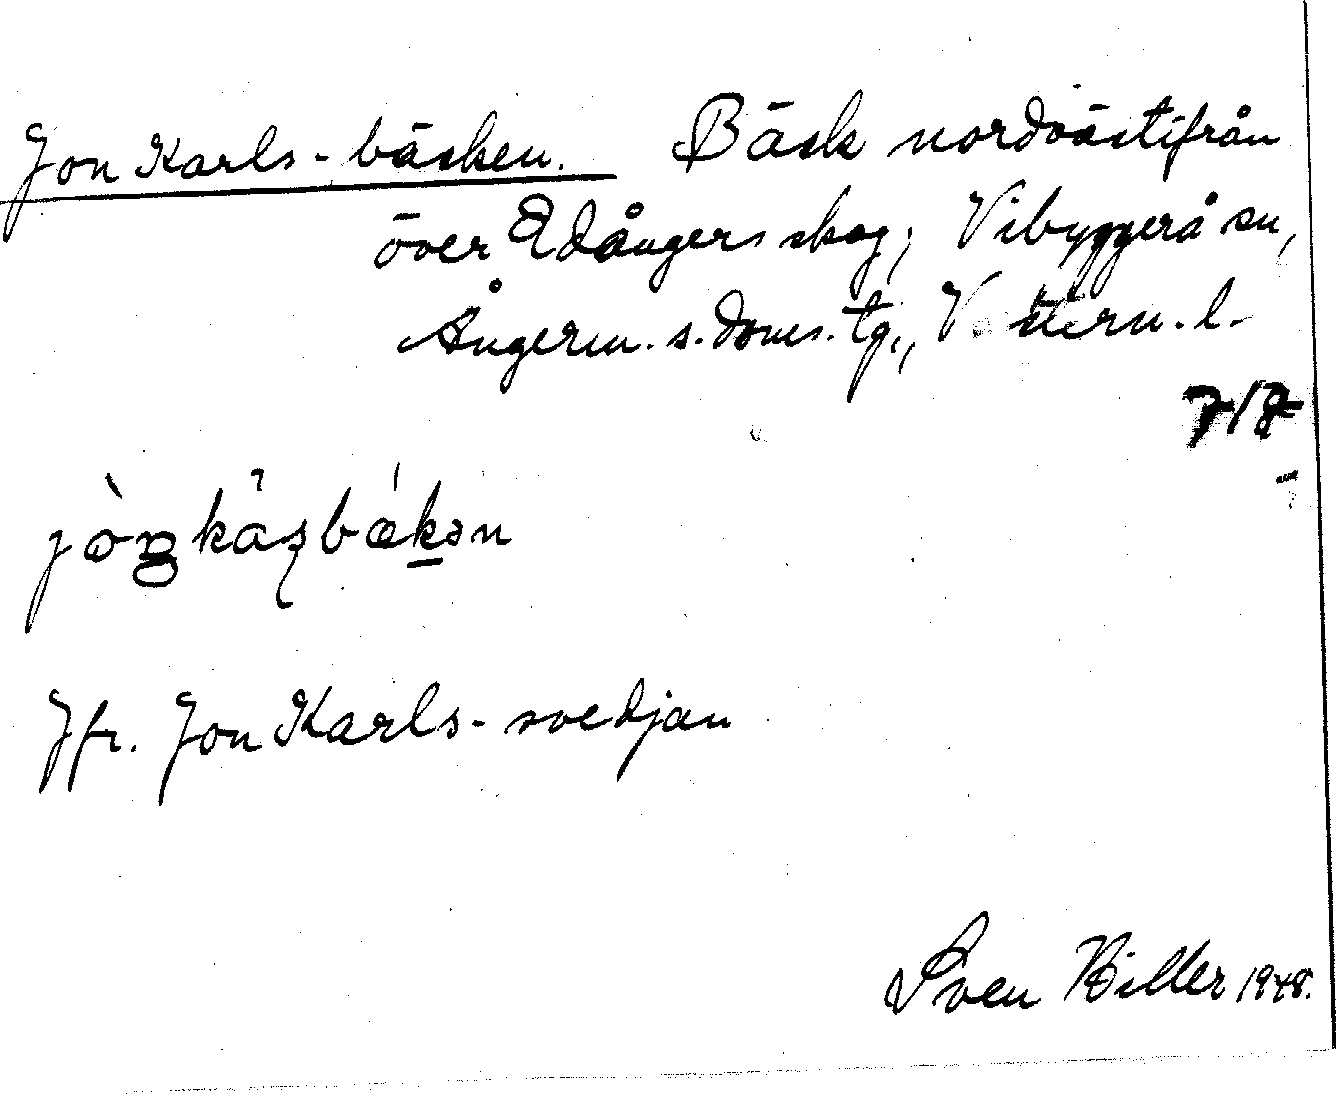 Jon Karls-bäcken. Bäck nordvästifrån
över Edångers skog; Vibyggerå sn,
Ångerm. s. doms. tg., V.
jfr. Jon Karls-svedjan
Sven Biller 1948.